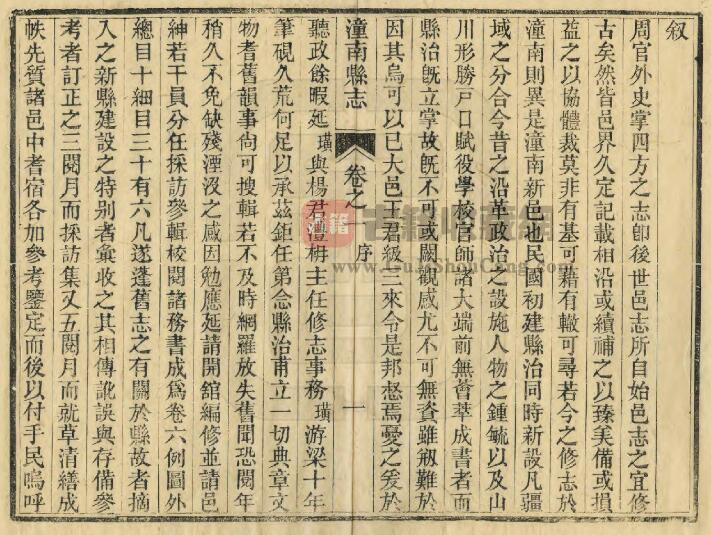 叙
周官外史掌四方之志卽後世邑志所自始邑志之宜修
古矣然皆邑界久定記載相沿或續補之以臻美備或損
益之以協體裁莫非有基可藉有轍可尋若今之修志於
潼南則異是潼南新邑也民國初建縣治同時新設凡疆
域之分合今昔之沿革政治之設施人物之鍾毓以及山
川形勝戸口賦役學校官師諸大端前無薈萃成書者而
縣治旣立掌故旣不可或闕觀感尤不可無資雖剏難於
因其烏可以已大邑王君級三來令是邦惄焉憂之爰於
潼南縣志 卷之 序 一
聽政餘暇延璜與楊君澧枏主任修志事務璜游梁十年
筆硯久荒何足以承茲鉅任第念縣治甫立一切典章文
物耆舊韻事尙可搜輯若不及時網羅放失舊聞恐閱年
稍久不免缺殘湮沒之感因勉應延請開舘編修並請邑
紳若干員分任採訪參輯校閱諸務書成爲卷六例圖外
總目十細目三十有六凡遂蓬舊志之有關於縣故者摘
入之新縣建設之特别者彙收之其相傳訛誤與存備參
考者訂正之三閱月而採訪集又五閱月而就草清繕成
帙先質諸邑中耆宿各加參考鑒定而後以付手民嗚呼
古籍 古籍收藏网
www.GuJiShouCang.com